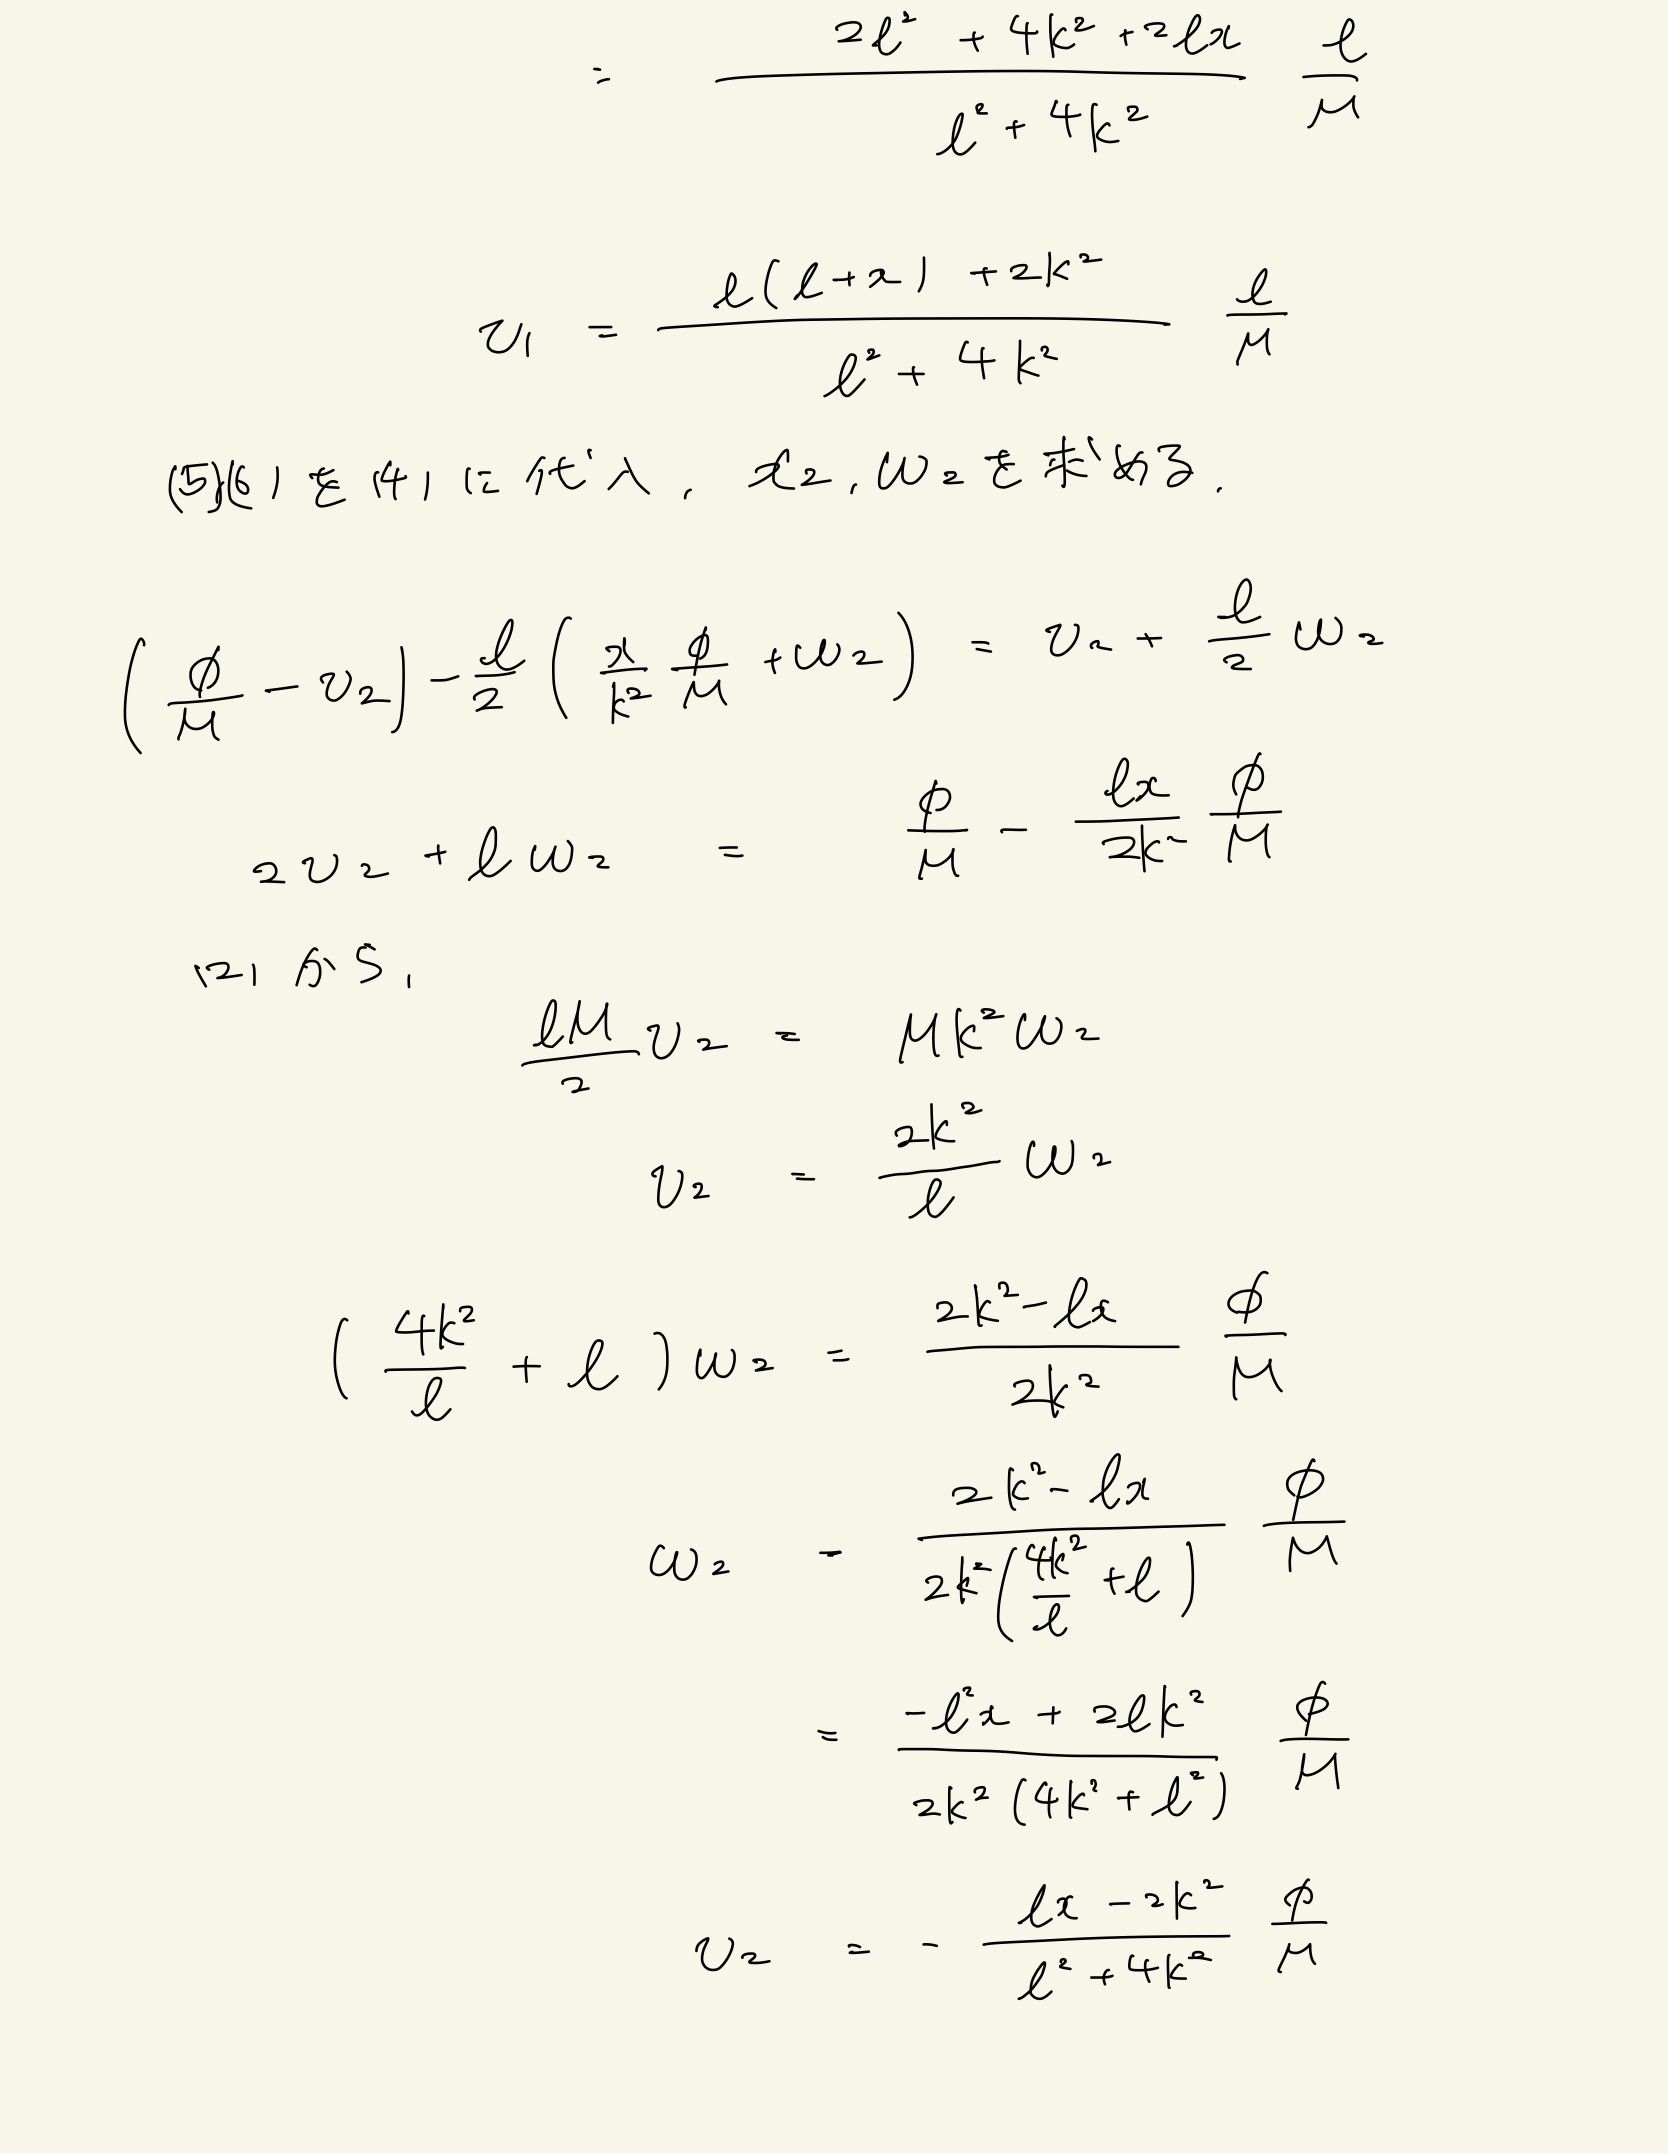 = \frac{2l^2 + 4k^2 + 2lx}{l^2 + 4k^2} \frac{l}{M}
v_1 = \frac{l(l+x) + 2k^2}{l^2 + 4k^2} \frac{l}{M}
(5)(6)を(4)に代入, x_2, ω_2を求める.
(\frac{φ}{M} - v_2) - \frac{l}{2} (\frac{x}{k^2} \frac{φ}{M} + ω_2) = v_2 + \frac{l}{2} ω_2
2v_2 + lω_2 = \frac{φ}{M} - \frac{lx}{2k^2} \frac{φ}{M}
(2)から,
\frac{lM}{2} v_2 = Mk^2 ω_2
v_2 = \frac{2k^2}{l} ω_2
(\frac{4k^2}{l} + l) ω_2 = \frac{2k^2 - lx}{2k^2} \frac{φ}{M}
ω_2 = \frac{2k^2 - lx}{2k^2 (\frac{4k^2}{l} + l)} \frac{φ}{M}
= \frac{-l^2x + 2lk^2}{2k^2 (4k^2 + l^2)} \frac{φ}{M}
v_2 = - \frac{lx - 2k^2}{l^2 + 4k^2} \frac{φ}{M}